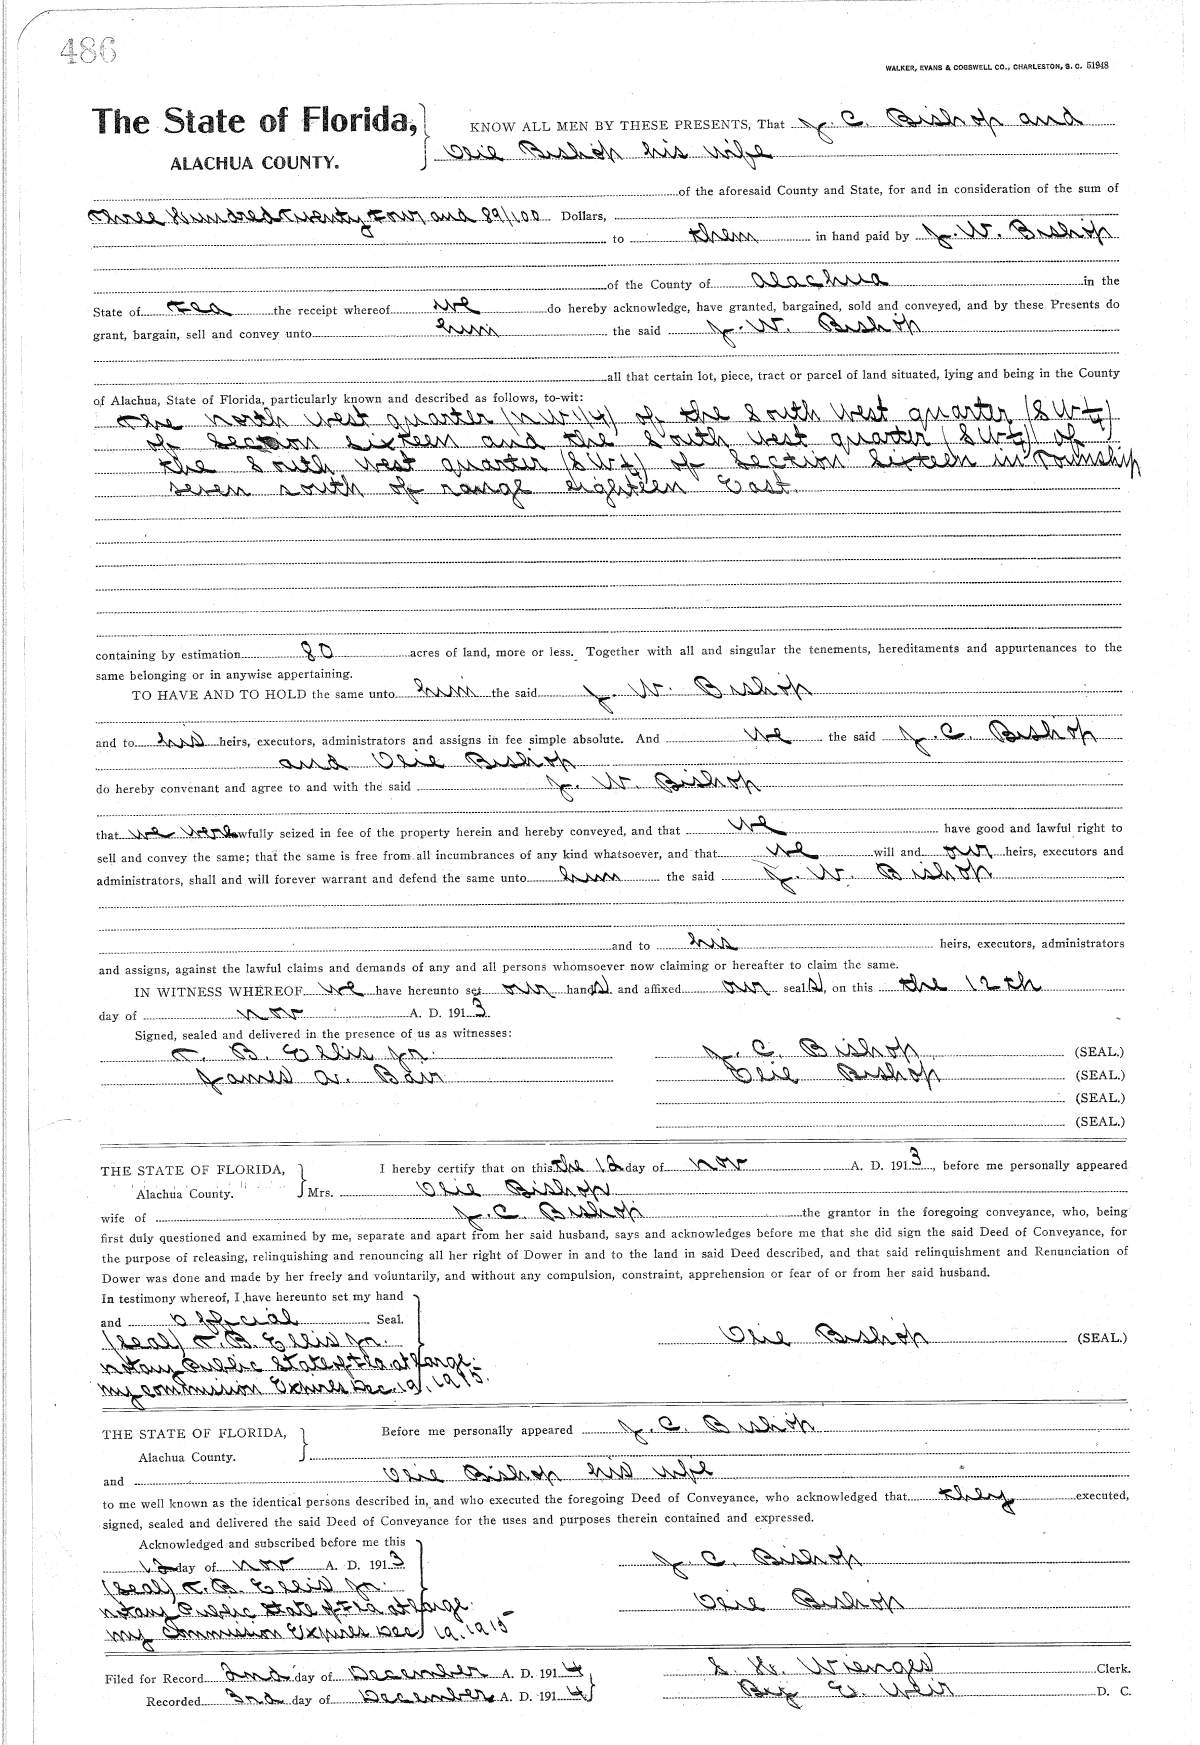 486
WALKER, EVANS & COGSWELL CO., CHARLESTON, S. C. 51948
The State of Florida,
ALACHUA COUNTY.
KNOW ALL MEN BY THESE PRESENTS, That J. C. Bishop and
Ocie Bishop his wife
of the aforesaid County and State, for and in consideration of the sum of
Three Hundred Twenty Four and 89/100 Dollars,
to them in hand paid by J. W. Bishop
of the County of Alachua in the
State of Fla the receipt whereof we do hereby acknowledge, have granted, bargained, sold and conveyed, and by these Presents do
grant, bargain, sell and convey unto him the said J. W. Bishop
all that certain lot, piece, tract or parcel of land situated, lying and being in the County
of Alachua, State of Florida, particularly known and described as follows, to-wit:
The north West quarter (NW 1/4) of the South West quarter (SW 1/4)
of Section Sixteen and the South West quarter (SW 1/4) of
the South West quarter (SW 1/4) of Section Sixteen in Township
seven south of range eighteen East.
containing by estimation 80 acres of land, more or less. Together with all and singular the tenements, hereditaments and appurtenances to the
same belonging or in anywise appertaining.
TO HAVE AND TO HOLD the same unto him the said J. W. Bishop
and to his heirs, executors, administrators and assigns in fee simple absolute. And we the said J. C. Bishop
and Ocie Bishop
do hereby convenant and agree to and with the said J. W. Bishop
that we were lawfully seized in fee of the property herein and hereby conveyed, and that we have good and lawful right to
sell and convey the same; that the same is free from all incumbrances of any kind whatsoever, and that we will and our heirs, executors and
administrators, shall and will forever warrant and defend the same unto him the said J. W. Bishop
and to his heirs, executors, administrators
and assigns, against the lawful claims and demands of any and all persons whomsoever now claiming or hereafter to claim the same.
IN WITNESS WHEREOF we have hereunto set our hands and affixed our seals, on this the 12th
day of Nov A. D. 1913.
Signed, sealed and delivered in the presence of us as witnesses:
T. B. Ellis Jr. J. C. Bishop (SEAL.)
James A. Bair Ocie Bishop (SEAL.)
(SEAL.)
(SEAL.)
THE STATE OF FLORIDA, I hereby certify that on this the 12 day of Nov A. D. 1913, before me personally appeared
Alachua County. Mrs. Ocie Bishop
wife of J. C. Bishop the grantor in the foregoing conveyance, who, being
first duly questioned and examined by me, separate and apart from her said husband, says and acknowledges before me that she did sign the said Deed of Conveyance, for
the purpose of releasing, relinquishing and renouncing all her right of Dower in and to the land in said Deed described, and that said relinquishment and Renunciation of
Dower was done and made by her freely and voluntarily, and without any compulsion, constraint, apprehension or fear of or from her said husband.
In testimony whereof, I have hereunto set my hand
and official Seal.
(Seal) T. B. Ellis Jr. Ocie Bishop (SEAL.)
Notary Public State of Fla at large.
my commission Expires Dec. 19, 1915.
THE STATE OF FLORIDA, Before me personally appeared J. C. Bishop
Alachua County.
and Ocie Bishop his wife
to me well known as the identical persons described in, and who executed the foregoing Deed of Conveyance, who acknowledged that they executed,
signed, sealed and delivered the said Deed of Conveyance for the uses and purposes therein contained and expressed.
Acknowledged and subscribed before me this
12 day of Nov A. D. 1913 J. C. Bishop
(Seal) T. B. Ellis Jr.
Notary Public State of Fla at large. Ocie Bishop
my Commission Expires Dec 19, 1915
Filed for Record 2nd day of December A. D. 1914 S. H. Wienges Clerk.
Recorded 3rd day of December A. D. 1914 By E. Weir D. C.